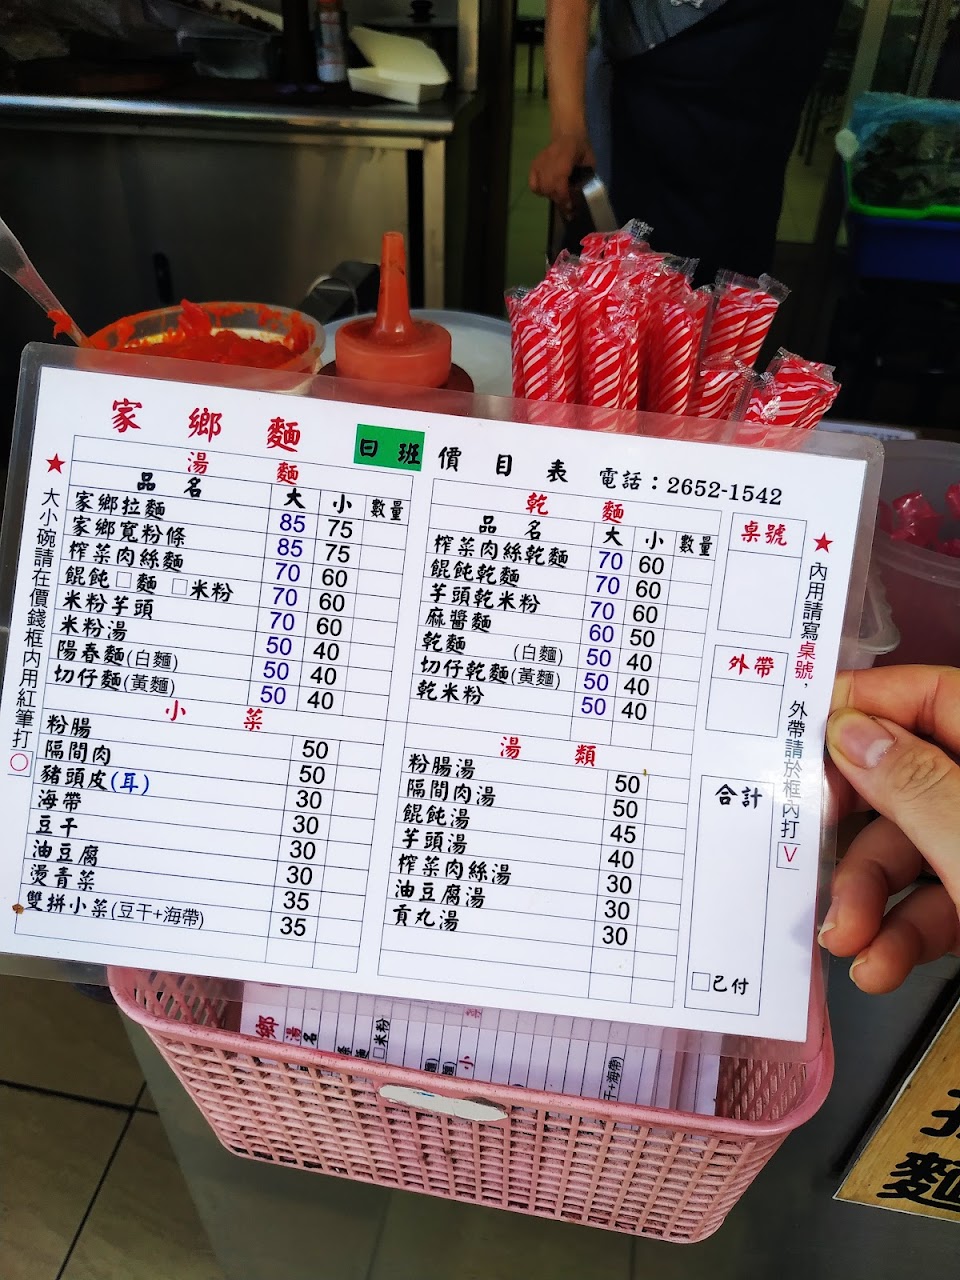 家鄉麵 日班 價目表 電話：2652-1542
★大小碗請在價錢框内用紅筆打○
湯麵
品名 大 小 數量
家鄉拉麵 85 75
家鄉寬粉條 85 75
榨菜肉絲麵 70 60
餛飩□麵 □米粉 70 60
米粉芋頭 70 60
米粉湯 50 40
陽春麵(白麵) 50 40
切仔麵(黃麵) 50 40
小菜
粉腸 50
隔間肉 50
豬頭皮(耳) 30
海帶 30
豆干 30
油豆腐 30
燙青菜 35
雙拼小菜(豆干+海帶) 35
乾麵
品名 大 小 數量
榨菜肉絲乾麵 70 60
餛飩乾麵 70 60
芋頭乾米粉 70 60
麻醬麵 60 50
乾麵 (白麵) 50 40
切仔乾麵(黃麵) 50 40
乾米粉 50 40
湯類
粉腸湯 50
隔間肉湯 50
餛飩湯 45
芋頭湯 40
榨菜肉絲湯 30
油豆腐湯 30
貢丸湯 30
桌號
外帶
合計
□已付
★內用請寫桌號，外帶請於框內打V
鄉
湯
名
米粉
小
干+海帶)
麵